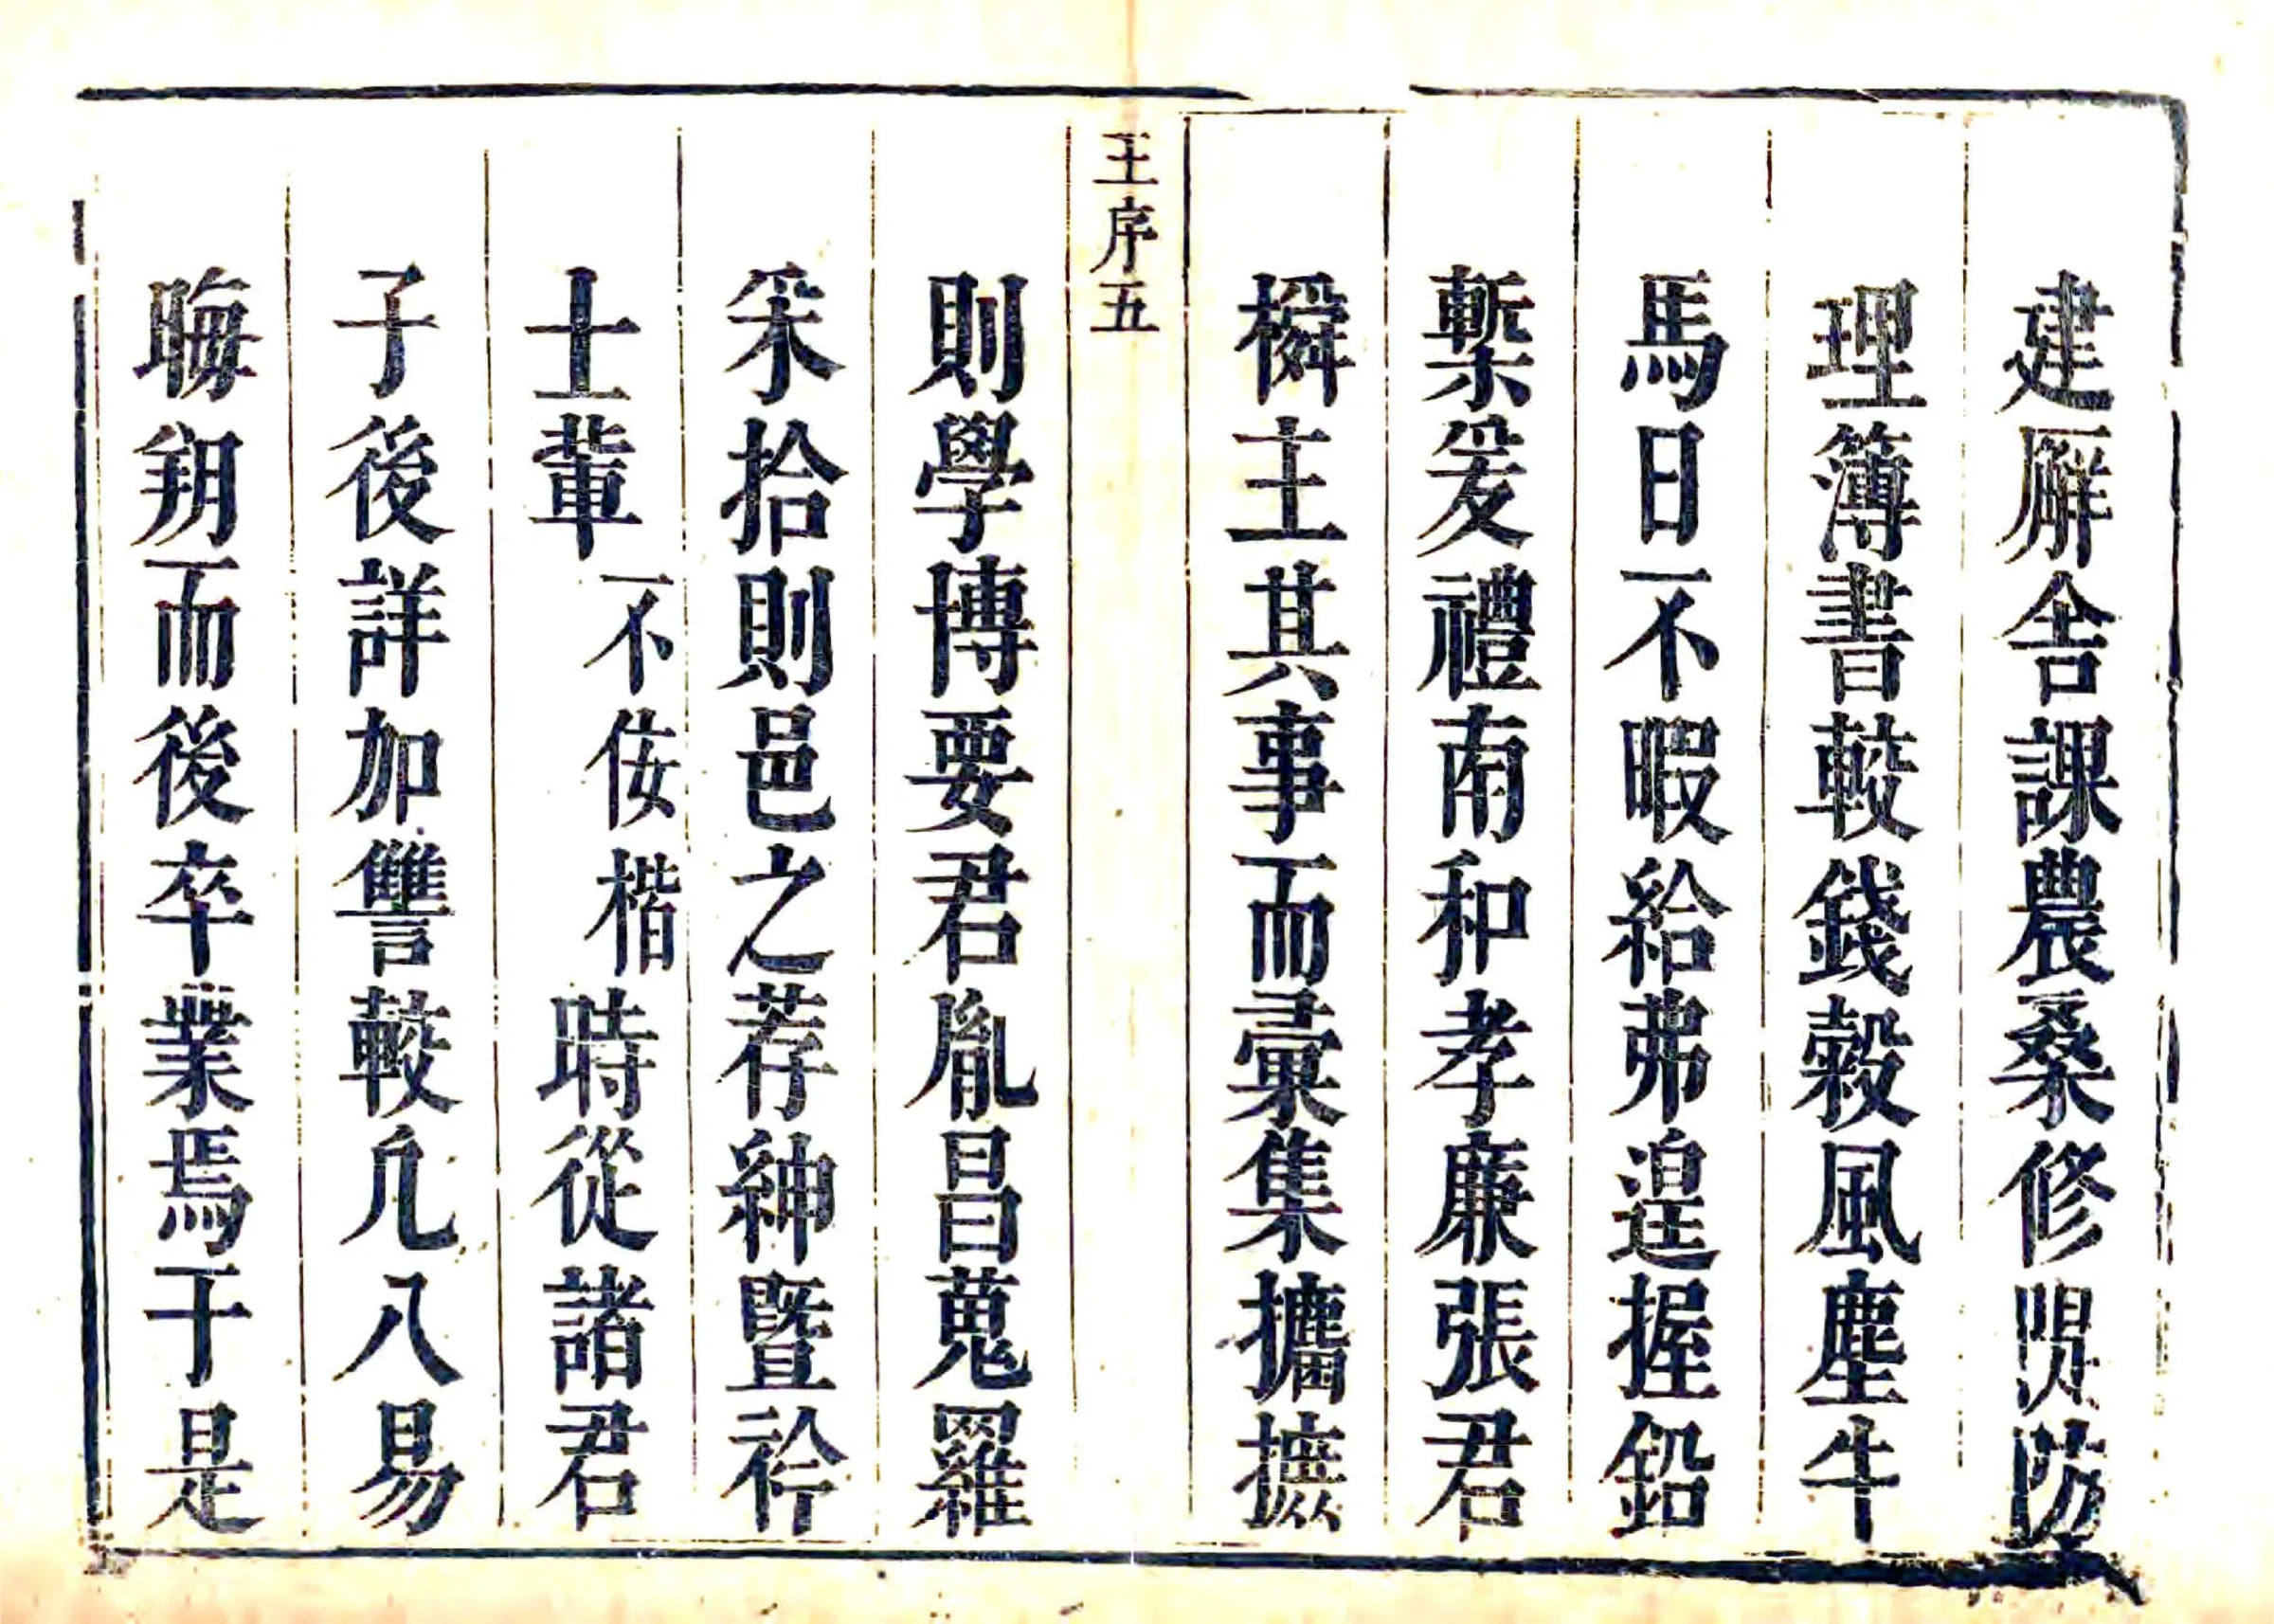 建廨舍課農桑修隄防
理簿書較錢穀風塵牛
馬日不暇給弗遑握鉛
槧爰禮南和孝廉張君
橓主其事而彙集攟摭
王序五
則學博要君胤昌蒐羅
采拾則邑之荐紳暨衿
士輩不佞楷時從諸君
子後詳加讐較凢八易
晦朔而後卒業焉于是